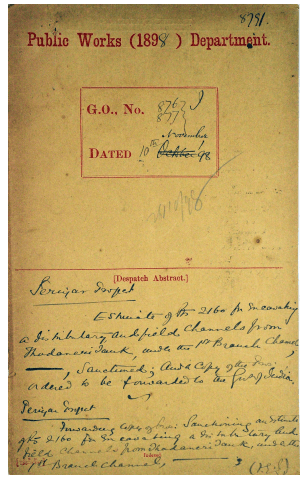 8791.
Public Works (1898) Department.
G.O., No. 876 I
877
November
DATED 10th October 98
[Despatch Abstract.]
Periyar Project
Estimate of Rs 2160 for Excavating
a distributary and field Channels from
Thadaneri Tank, under the 1st Branch Channel,
Sanctioned; and a Copy of the
ordered to be forwarded to the Govt of India
Periyar Project
Forwarding copy of Sanctioning an Este
of Rs 2160 for Excavating a distributary and
field Channels from Thadaneri Tank, under the
Branch Channel,